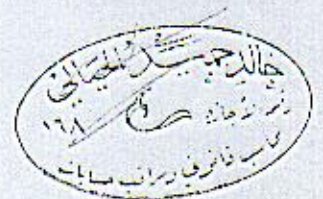 خالد حميد الخيالي
رقم الاجازة
١٦٨
محاسب قانوني ومراقب حسابات